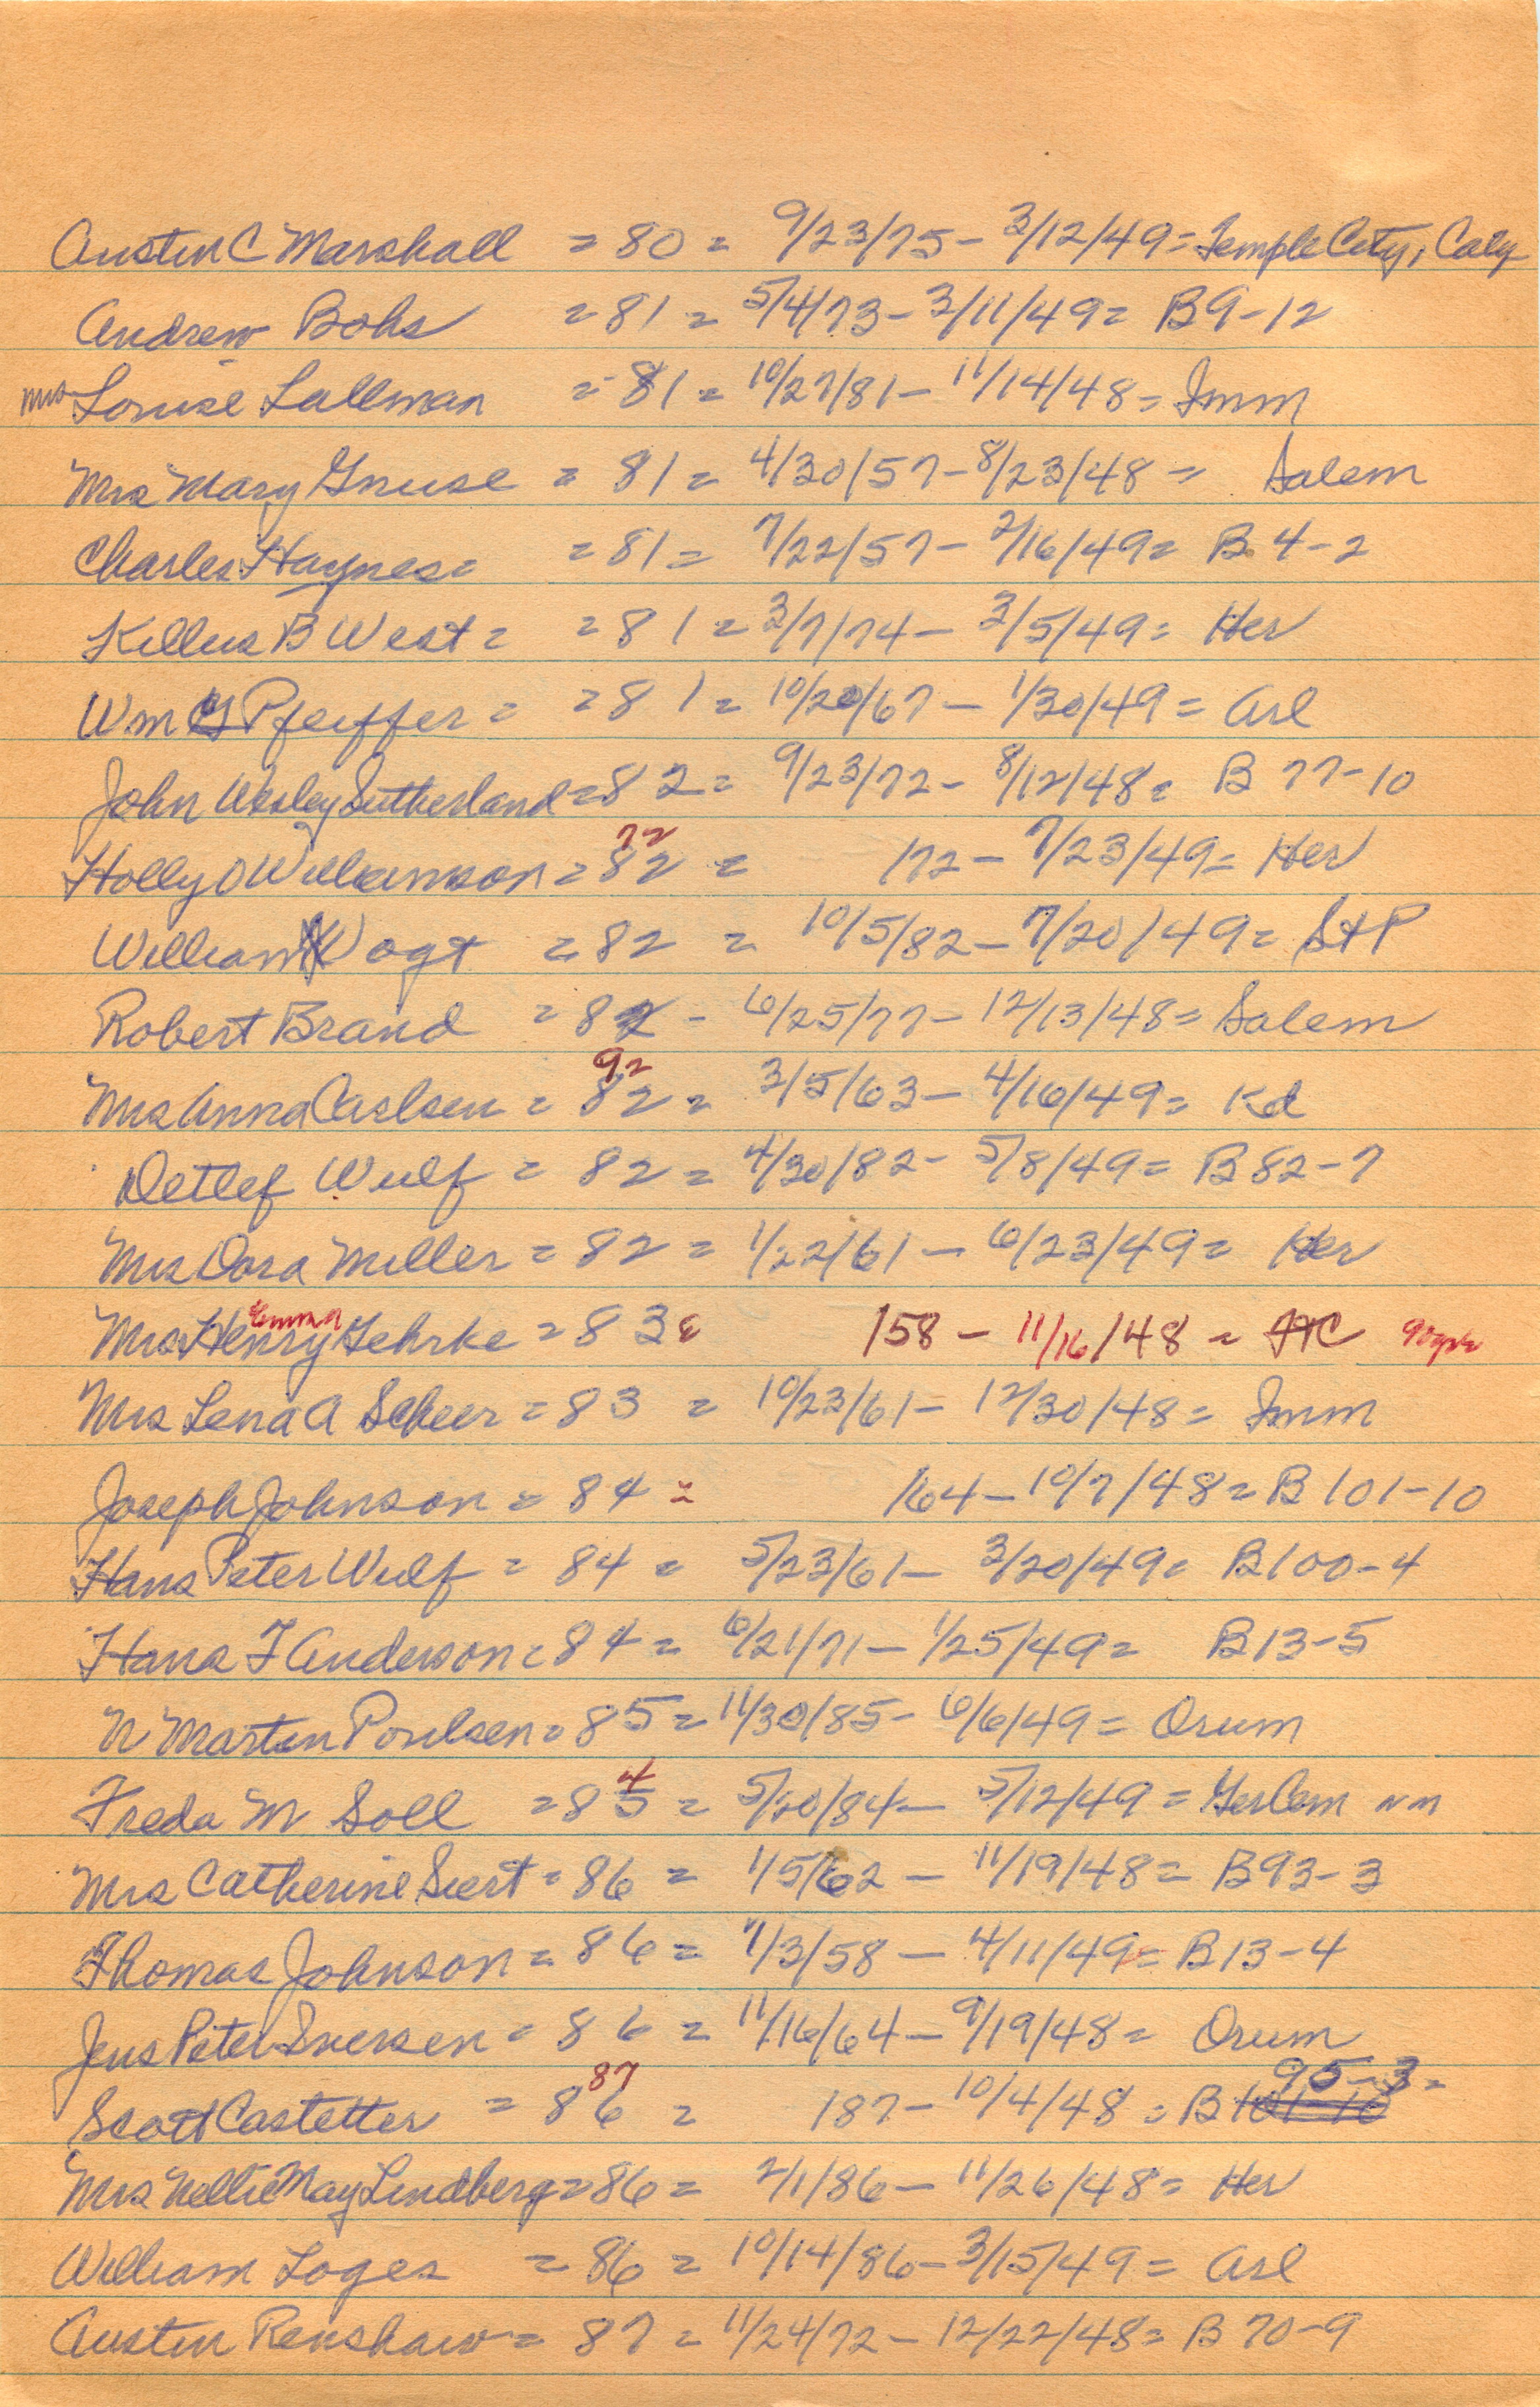 Austin C Marshall = 80 = 9/23/75 - 3/12/49 = Temple City, Calif
Andrew Bohs = 81 = 5/4/73 - 3/11/49 = B9-12
Mrs Louise Lallman = 81 = 10/27/81 - 11/14/48 = Imm
Mrs Mary Gnuse = 81 = 4/30/57 - 8/23/48 = Salem
Charles Haynes = = 81 = 7/22/57 - 2/16/49 = B 4-2
B West = = 81 = 3/7/74 - 3/5/49 = Her
Wm G Pfeiffer = = 81 = 10/20/67 - 1/30/49 = Arl
John Wesley Sutherland = 82 = 9/23/72 - 8/12/48 = B 77-10
72
Holly O Williamson = 82 = /72 - 7/23/49 = Her
William Vogt = 82 = 10/5/82 - 7/20/49 = St P
Robert Brand = 82 - 6/25/77 - 12/13/48 = Salem
92
Mrs Anna Carlsen = 82 = 3/5/63 - 4/16/49 = Kd
Detlef Wulf = 82 = 4/30/82 - 5/8/49 = B82-7
Mrs Dora Miller = 82 = 1/22/61 - 6/23/49 = Her
Emma
Mrs Henry Gehrke = 83 = /58 - 11/16/48 =
Mrs Lena A Scheer = 83 = 10/23/61 - 12/30/48 = Imm
Joseph Johnson = 84 = /64 - 10/7/48 = B101-10
Hans Peter Wulf = 84 = 5/23/61 - 3/20/49 = B100-4
Hans F Anderson = 84 = 6/21/71 - 1/25/49 = B13-5
N Marten Poulsen = 85 = 11/30/85 - 6/6/49 = Orum
4
Freda M Soll = 85 = 5/20/84 - 5/12/49 = Ger Cem nn
Mrs Catherine Siert = 86 = 1/5/62 - 11/19/48 = B93-3
Thomas Johnson = 86 = 1/3/58 - 4/11/49 = B13-4
Jens Peter Iversen = 86 = 11/16/64 - 9/19/48 = Orum
87 95-3 =
Scott Castetter = 86 = /87 - 10/4/48 = B 101-10
Mrs Nellie May Lindberg = 86 = 2/1/86 - 11/26/48 = Her
William Loges = 86 = 10/14/86 - 3/15/49 = Arl
Austin Renshaw = 87 = 11/24/72 - 12/22/48 = B 70-9